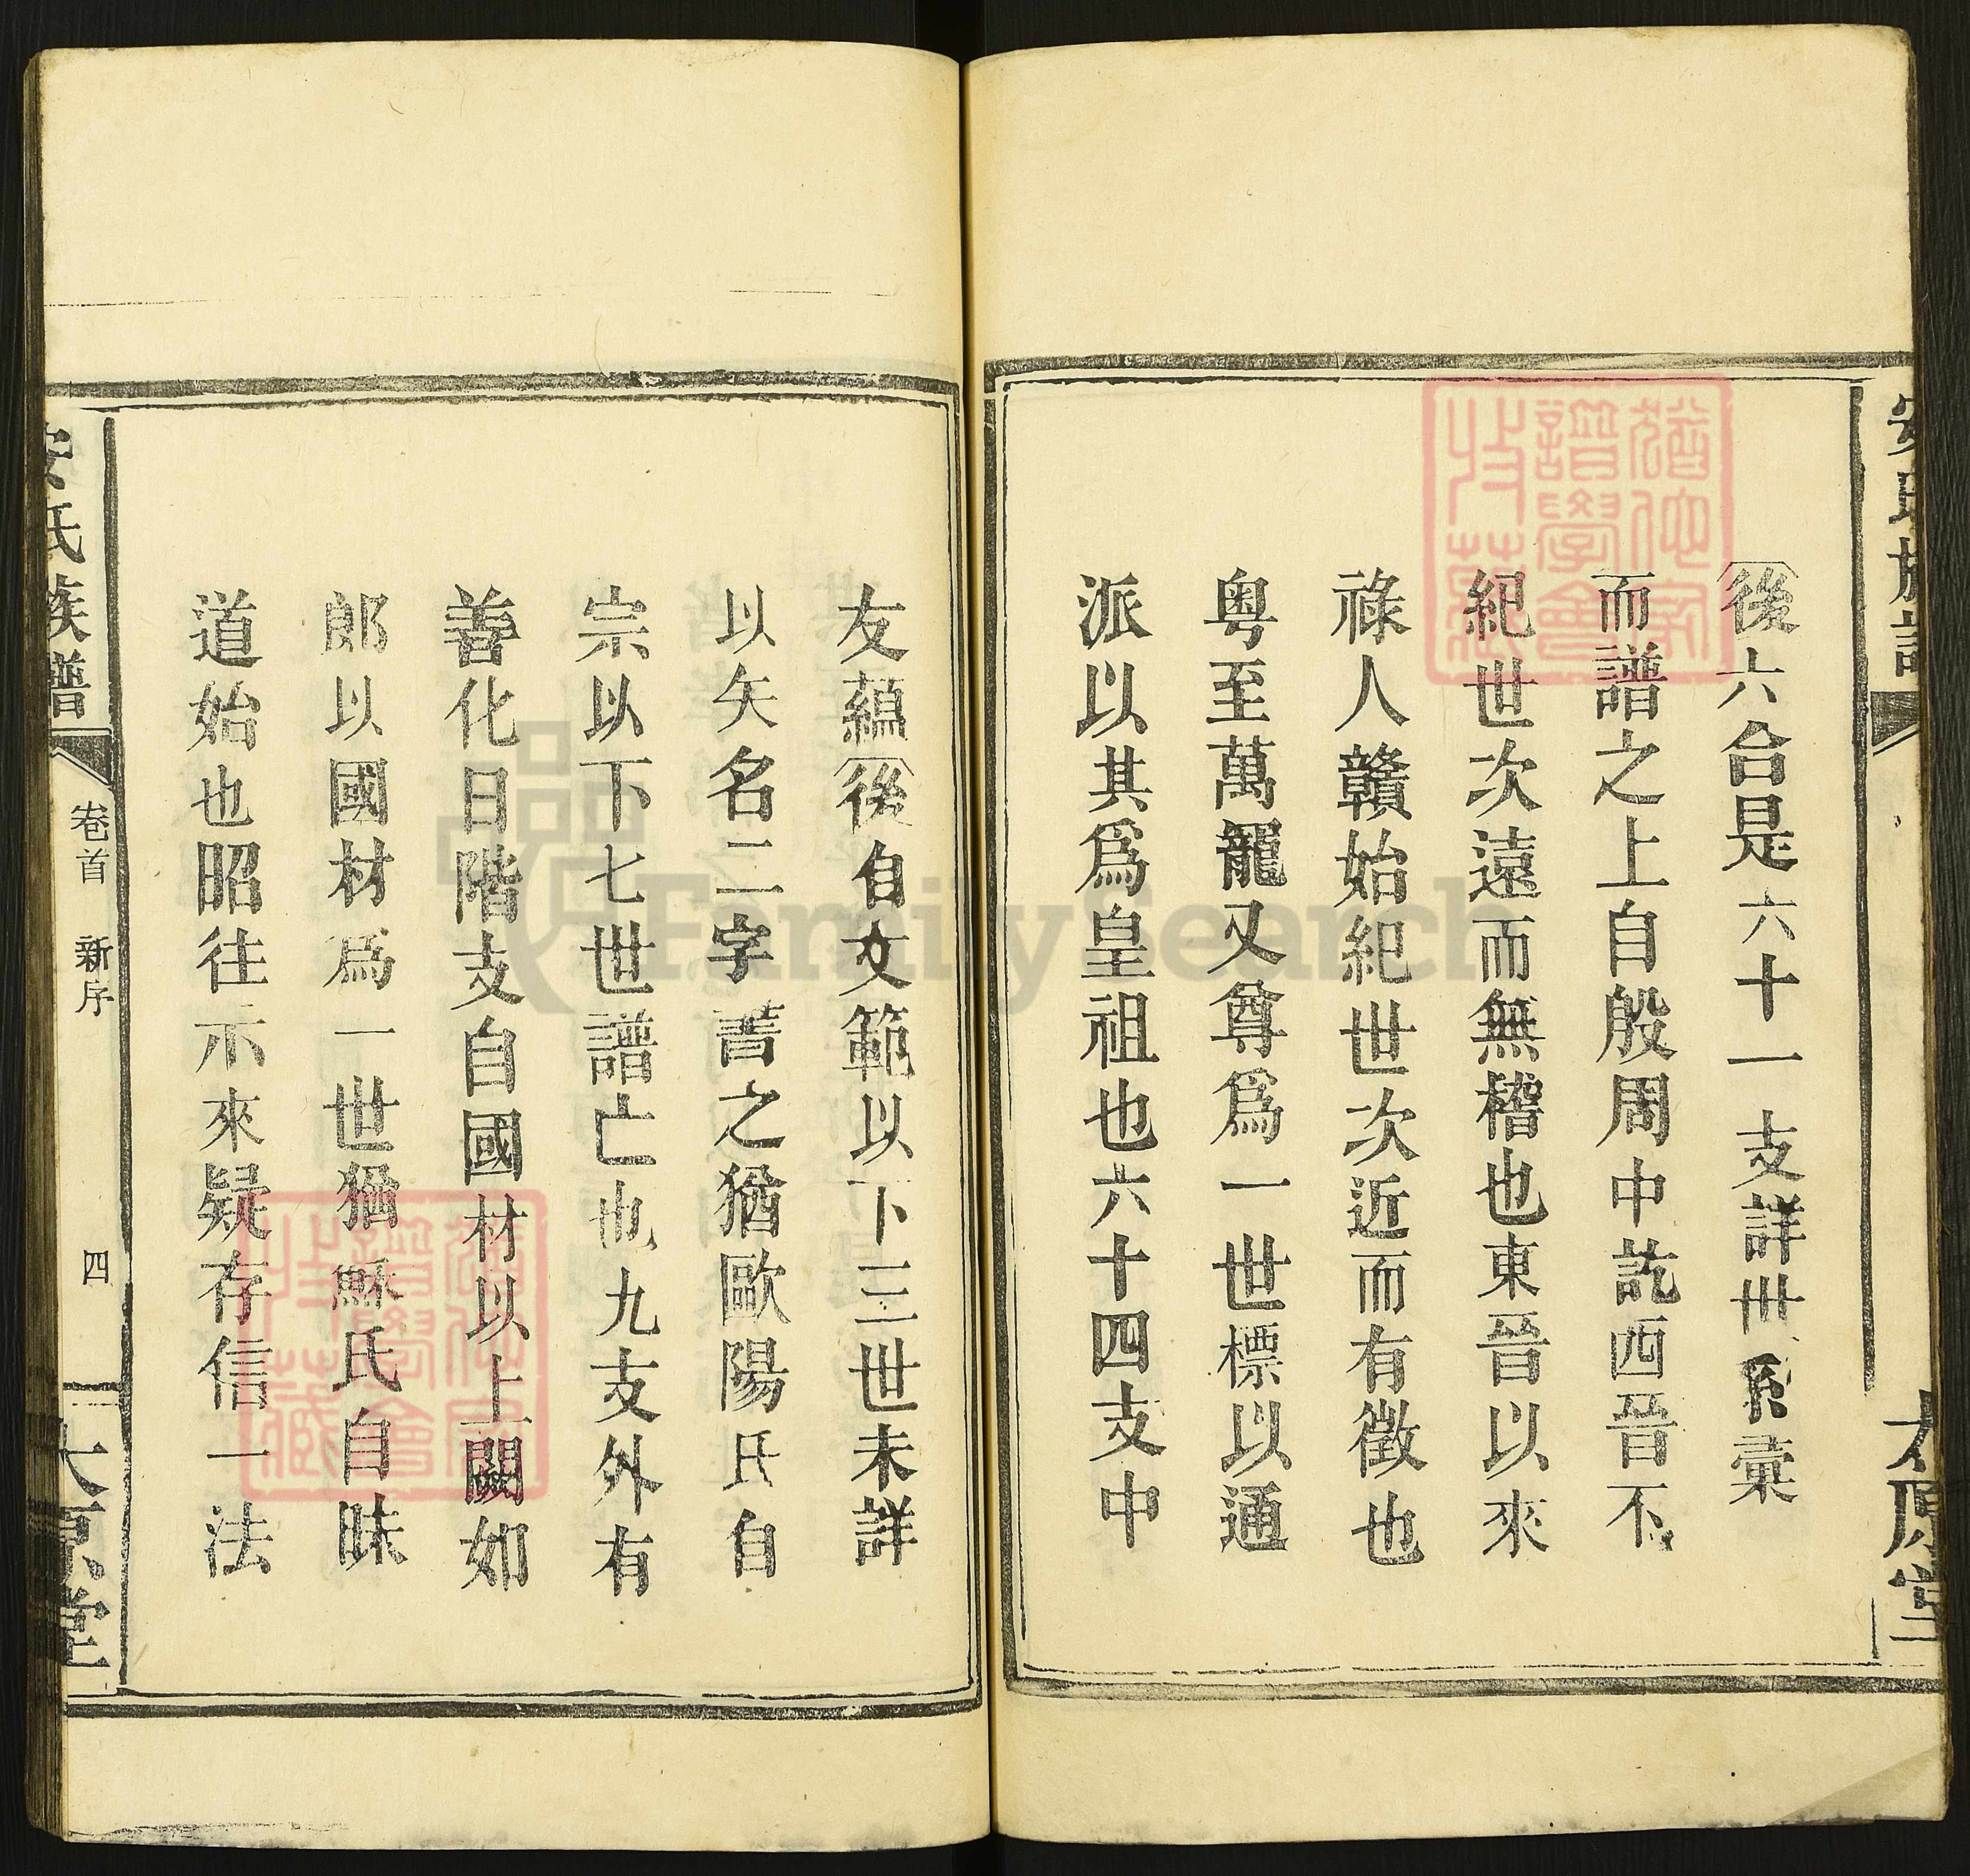 後六合是六十一支詳卌系彙
而譜之上自殷周中訖西晉不
紀世次遠而無稽也東晉以來
祿人贛始紀世次近而有徵也
粤至萬龍又尊爲一世標以通
派以其爲皇祖也六十四支中
友蘊後自文範以下三世未詳
以矢名二字蓍之猶歐陽氏自
宗以下七世譜亡也九支外有
善化日階支自國材以上闕如
郎以國材爲一世猶穌氏自昧
道始也昭往示來疑存信一法
安氏族譜
卷首 新序
四
太原堂
安氏族譜
太原堂
猶他家
譜學會
收藏
猶他家
譜學會
收藏
FamilySearch